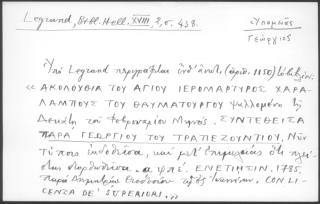 Legrand, Bibl. Hell. XVIII, 2, σ. 438.
Ὑπομνῆς
Γεώργιος
Ὑπὸ Legrand περιγράφεται ὑπ' ἀριθ. (ἀριθ. 1150)
« ΑΚΟΛΟΥΘΙΑ ΤΟΥ ΑΓΙΟΥ ΙΕΡΟΜΑΡΤΥΡΟΣ ΧΑΡΑ-
ΛΑΜΠΟΥΣ ΤΟΥ ΘΑΥΜΑΤΟΥΡΓΟΥ ψαλλομένη τῇ
Δεκάτῃ τοῦ Φεβρουαρίου Μηνός. ΣΥΝΤΕΘΕΙΣΑ
ΠΑΡΑ ΓΕΩΡΓΙΟΥ ΤΟΥ ΤΡΑΠΕΖΟΥΝΤΙΟΥ, Νῦν
Τύποις ἐκδοθεῖσα, καὶ μετ' ἐπιμελείας ὅτι πλεί-
στης διορθωθεῖσα. αψπέ. ΕΝΕΤΙΗΣΙΝ, 1785.
παρὰ Δημητρίῳ Θεοδοσίου τῷ ἐξ Ἰωαννίνων. CON LI-
CENZA DE' SUPERIORI. »